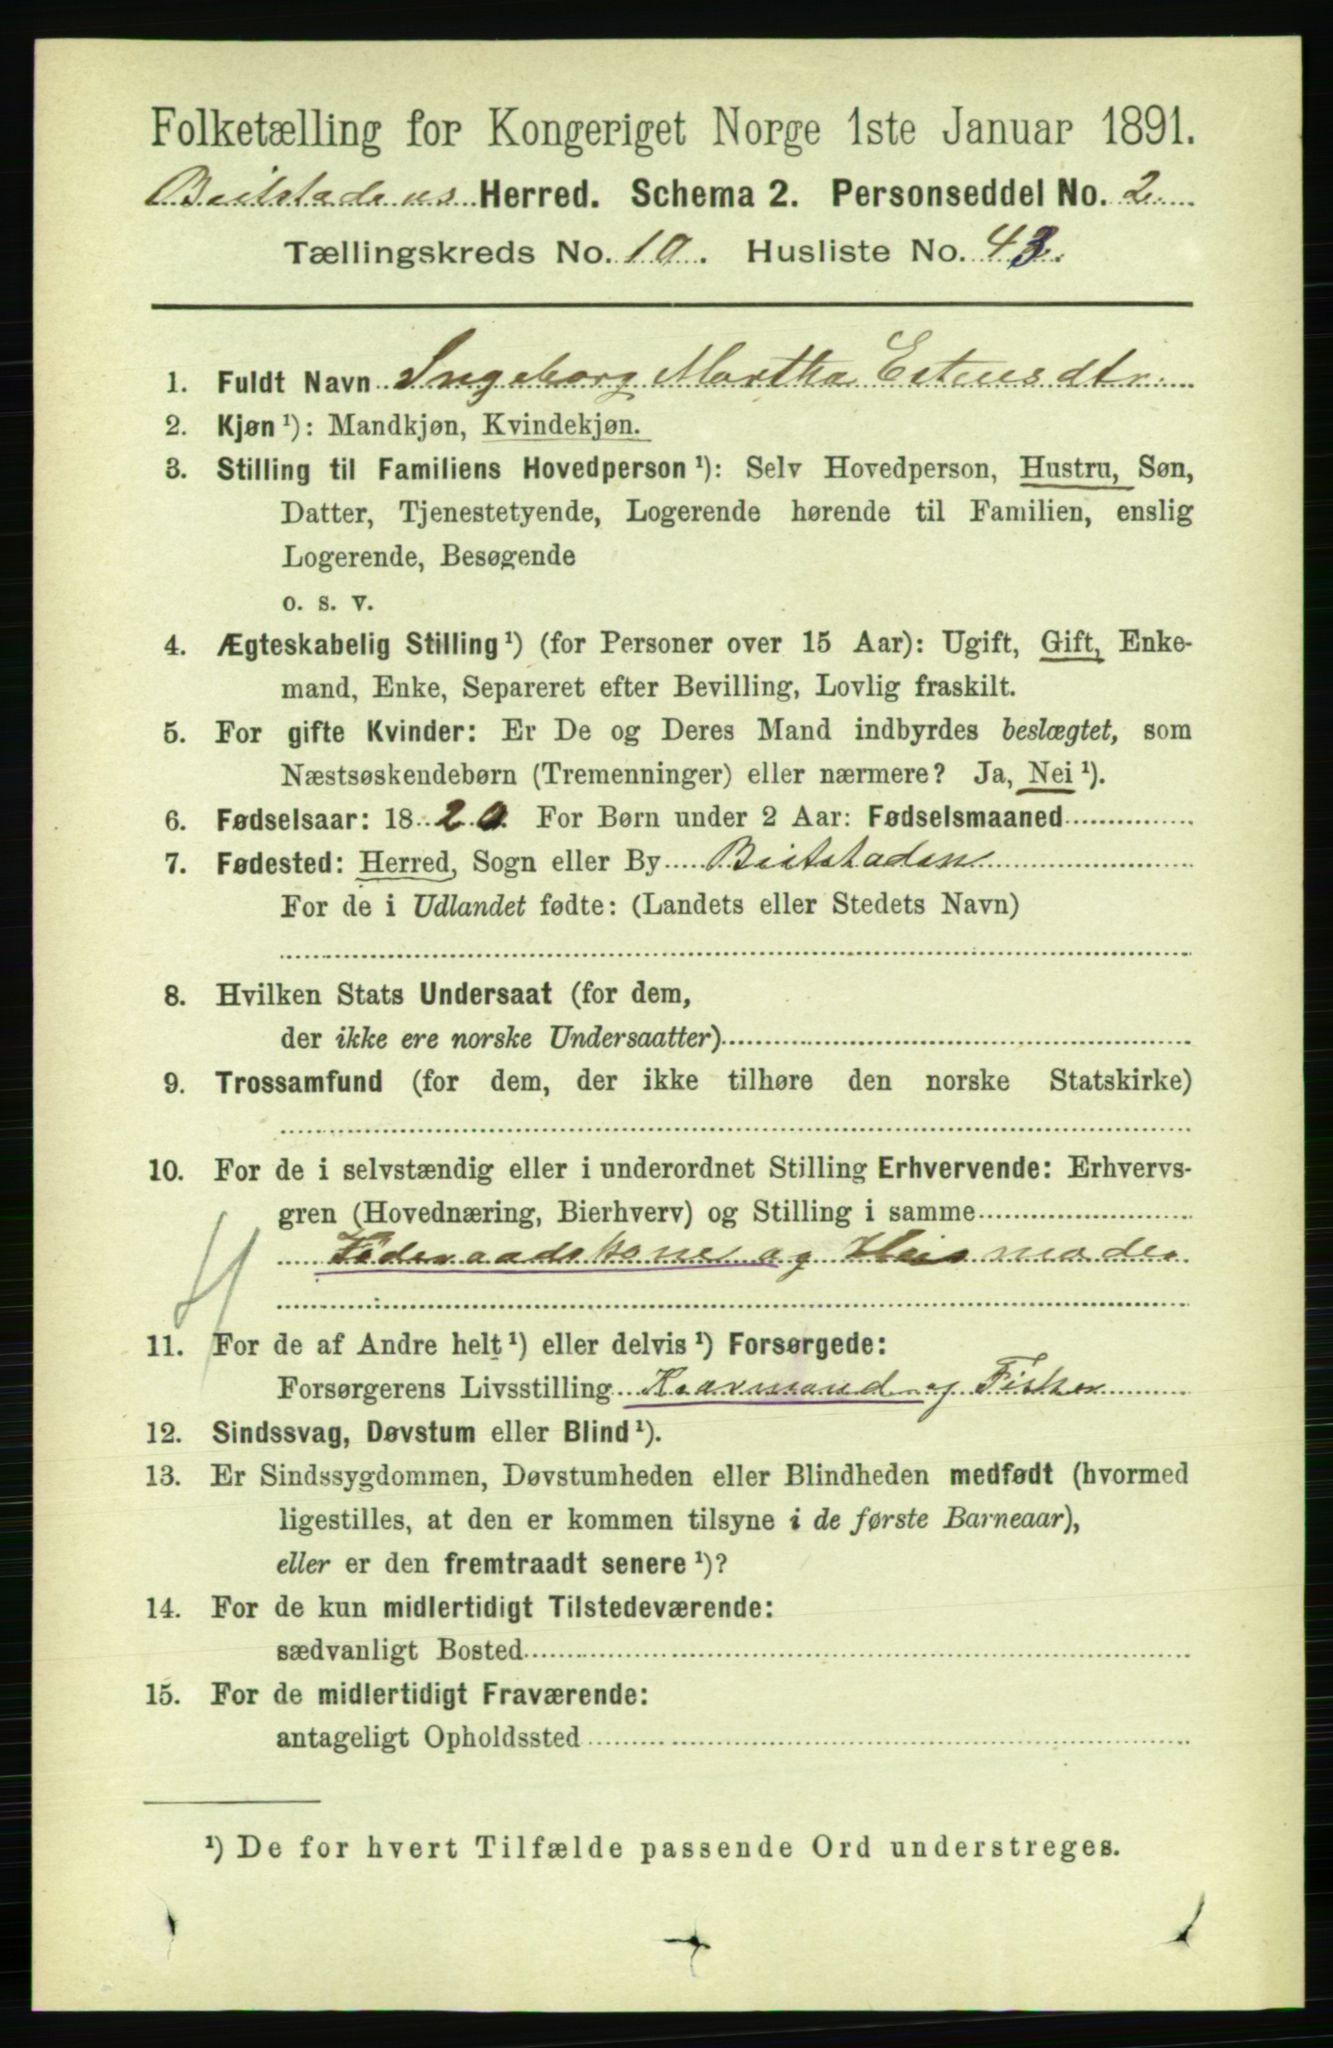 Folketælling for Kongeriget Norge 1ste Januar 1891.
Beitstadens Herred. Schema 2. Personseddel No. 2
Tællingskreds No. 10. Husliste No. 43.
1. Fuldt Navn Ingeborg Martha Estensdtr.
2. Kjøn¹): Mandkjøn, Kvindekjøn.
3. Stilling til Familiens Hovedperson¹): Selv Hovedperson, Hustru, Søn,
Datter, Tjenestetyende, Logerende hørende til Familien, enslig
Logerende, Besøgende
o. s. v.
4. Ægteskabelig Stilling¹) (for Personer over 15 Aar): Ugift, Gift, Enke-
mand, Enke, Separeret efter Bevilling, Lovlig fraskilt.
5. For gifte Kvinder: Er De og Deres Mand indbyrdes beslægtet, som
Næstsøskendebørn (Tremenninger) eller nærmere? Ja, Nei¹).
6. Fødselsaar: 1820. For Børn under 2 Aar: Fødselsmaaned
7. Fødested: Herred, Sogn eller By Beitstaden
For de i Udlandet fødte: (Landets eller Stedets Navn)
8. Hvilken Stats Undersaat (for dem,
der ikke ere norske Undersaatter)
9. Trossamfund (for dem, der ikke tilhøre den norske Statskirke)
10. For de i selvstændig eller i underordnet Stilling Erhvervende: Erhvervs-
gren (Hovednæring, Bierhverv) og Stilling i samme
Føderaadskone og Huusmoder
11. For de af Andre helt¹) eller delvis¹) Forsørgede:
Forsørgerens Livsstilling Kaarmand og Fisker
12. Sindssvag, Døvstum eller Blind¹).
13. Er Sindssygdommen, Døvstumheden eller Blindheden medfødt (hvormed
ligestilles, at den er kommen tilsyne i de første Barneaar),
eller er den fremtraadt senere¹)?
14. For de kun midlertidigt Tilstedeværende:
sædvanligt Bosted
15. For de midlertidigt Fraværende:
antageligt Opholdssted
¹) De for hvert Tilfælde passende Ord understreges.